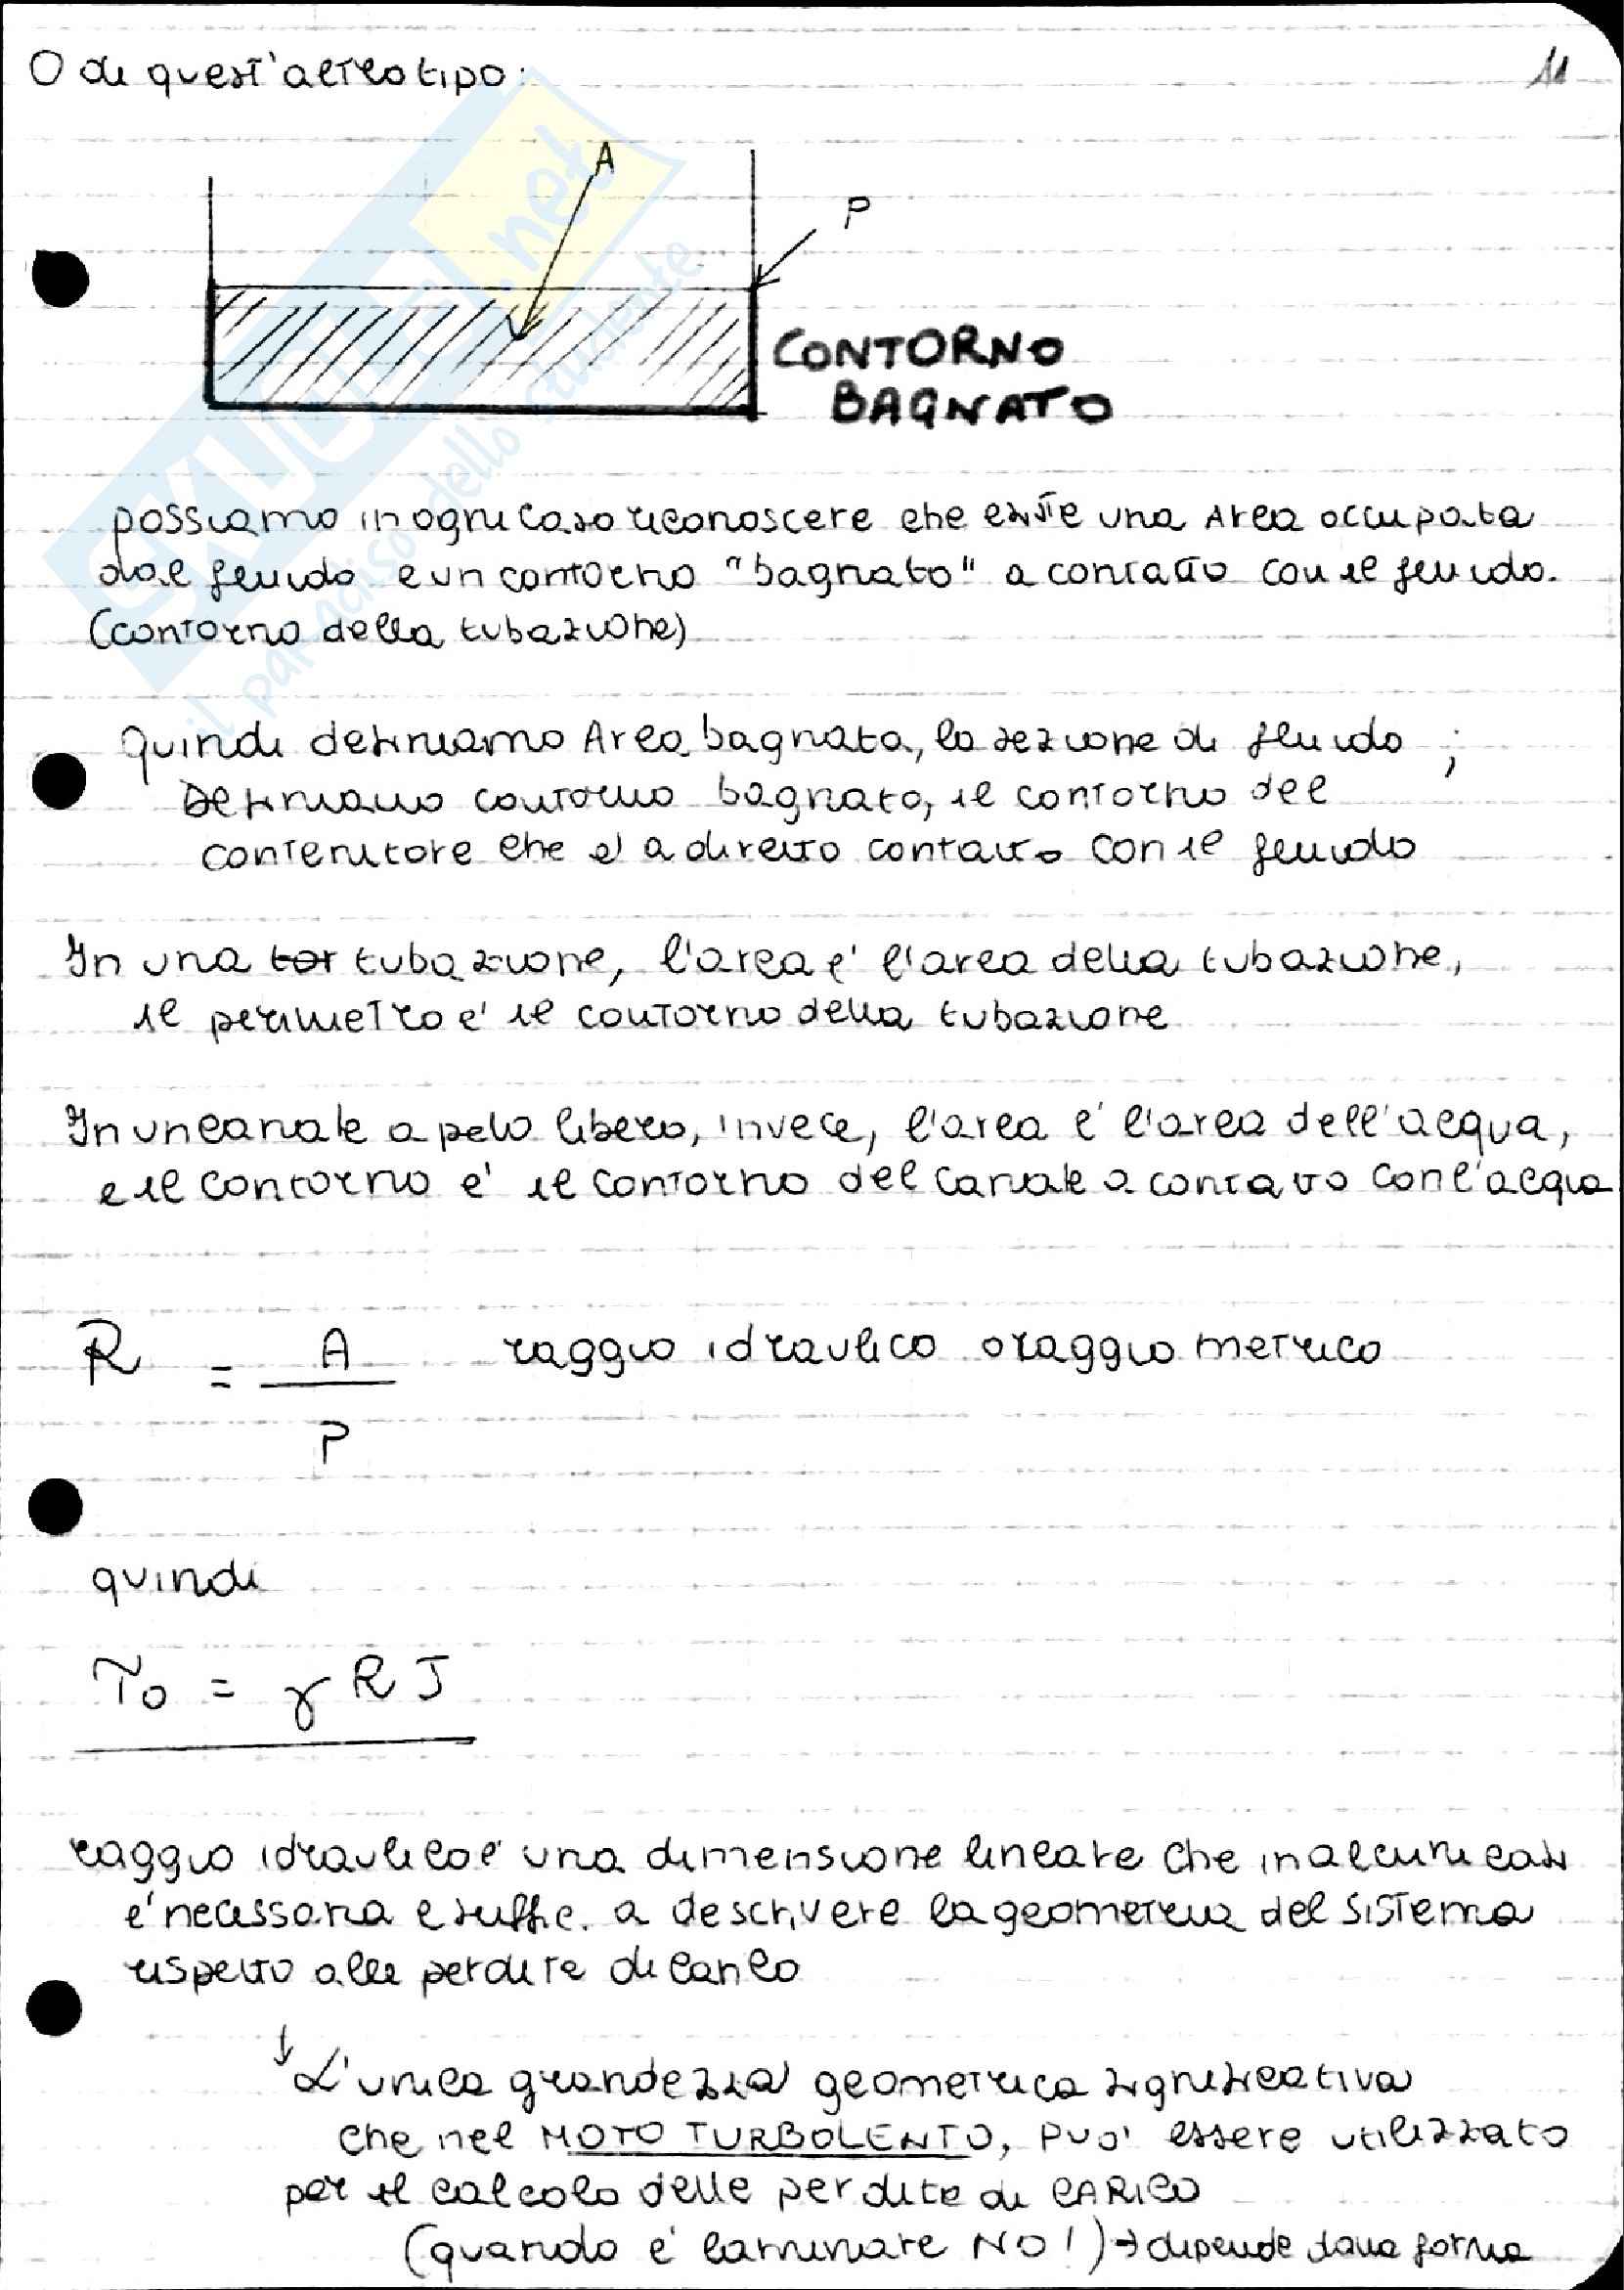 O di quest'altro tipo:
11
A
P
CONTORNO
BAGNATO
possiamo in ogni caso riconoscere che esiste una Area occupata
dal fluido e un contorno "bagnato" a contatto con il fluido.
(contorno della tubazione)
Quindi definiamo Area bagnata, la sezione di fluido ;
Definiamo contorno bagnato, il contorno del
contenitore che è a diretto contatto con il fluido
In una tor tubazione, l'area e' l'area della tubazione,
il perimetro e' il contorno della tubazione
In un canale a pelo libero, invece, l'area e' l'area dell'acqua,
e il contorno e' il contorno del canale a contatto con l'acqua
R = A
P
raggio idraulico o raggio metrico
quindi
τ0 = γ R J
raggio idraulico e' una dimensione lineare che in alcuni casi
e' necessaria e suffic. a descrivere la geometria del sistema
rispetto alle perdite di carico
↓ L'unica grandezza geometrica significativa
che nel MOTO TURBOLENTO, puo' essere utilizzato
per il calcolo delle perdite di CARICO
(quando e' laminare NO!) → dipende dalla forma
SKUOLA.net
il paradiso dello studente